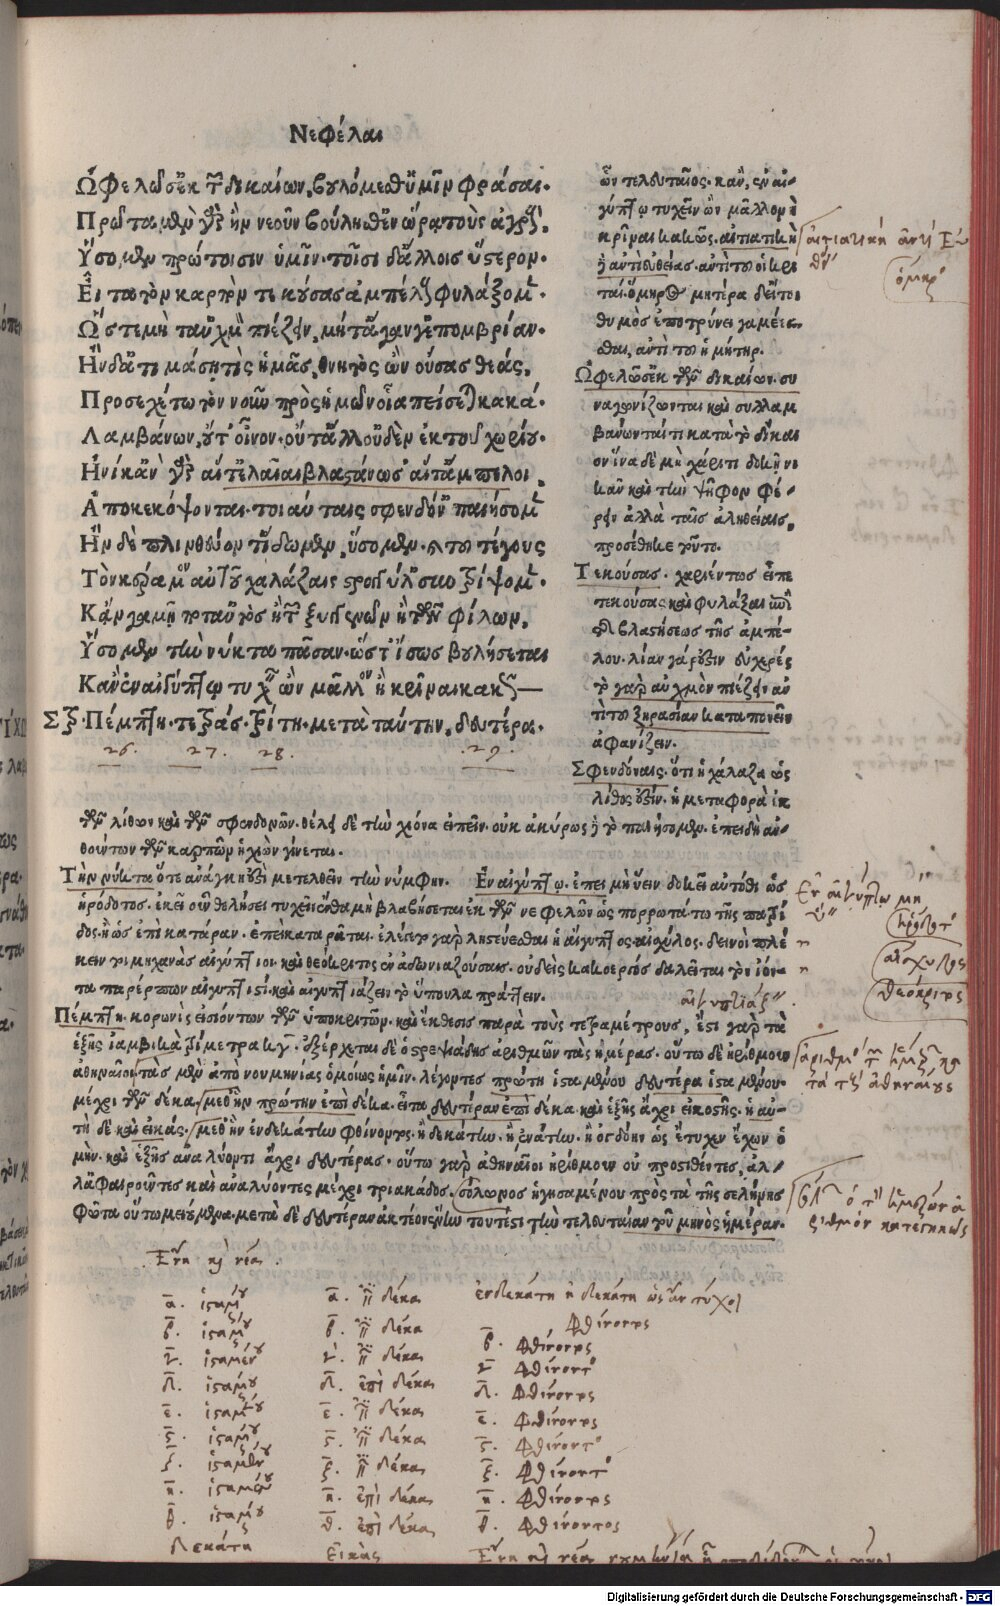 Νεφέλαι
Ὠφελῶσ' ἐκ τῶν δικαίων, βουλόμεθ' ὑμῖν φράσαι.
Πρῶτα μὲν γὰρ ἢν νεοῦν βούλησθ' ἐν ὥρᾳ τοὺς ἀγρούς.
Ὕσομεν πρώτοισιν ὑμῖν. τοῖσι δ' ἄλλοις ὕστερον.
Εἶτα τὸν καρπὸν τεκούσας ἀμπέλους φυλάξομεν.
Ὥστε μὴ ταῦτ' αὐχμὸν πιέζειν, μήτ' ἄγαν ἐπομβρίαν.
Ἢν δ' ἀτιμάσῃ τὶς ἡμᾶς, θνητὸς ὢν οὔσας θεάς,
Προσεχέτω τὸν νοῦν πρὸς ἡμῶν οἷα πείσεται κακά.
Λαμβάνων, οὔτ' οἶνον. οὔτ' ἄλλ' οὐδὲν ἐκ τοῦ χωρίου.
Ἡνίκ' ἂν γὰρ αἵ τ' ἐλαῖαι βλαστάνωσ' αἵ τ' ἄμπελοι,
Ἀποκεκόψονται. τοιαύταις σφενδόναις παιήσομεν.
Ἢν δὲ πλινθεύοντ' ἴδωμεν, ὕσομεν. καὶ τοῦ τέγους
Τὸν κέραμον αὐτοῦ χαλάζαις στρογγύλαις συντρίψομεν.
Κἂν γαμῇ ποτ' αὐτὸς ἢ τῶν ξυγγενῶν ἢ τῶν φίλων,
Ὕσομεν τὴν νύκτα πᾶσαν. ὥστ' ἴσως βουλήσεται
Κἂν ἐν αἰγύπτῳ τυχεῖν ὢν μᾶλλον ἢ κρῖναι κακῶς
Στρ. Πέμπτη. τετράς. τρίτη. μετὰ ταύτην, δευτέρα.
26. 27. 28. .29.
ὧν τελευταῖος. κἂν, ἐν αἰ-
γύπτῳ τυχεῖν ὢν μᾶλλον ἢ
κρῖναι κακῶς. αἰτιατικὴ
ἢ ἀντ' εὐθείας. ἀντὶ τοῦ οἱ κρι
ταί. ὅμηρος μητέρα δ' εἴ τοι
θυμὸς ἐποτρύνει γαμέεσ-
θαι, ἀντὶ τοῦ ἡ μήτηρ.
Ὠφελῶσ' ἐκ τῶν δικαίων. συ
ναγωνίζωνται καὶ συλλαμ
βάνωνταί τι κατὰ τὸ δίκαι
ον ἵνα δὲ μὴ χάριτι δοκῇ νι
κᾶν καὶ τὴν ψῆφον φέ-
ρειν ἀλλὰ ταῖς ἀληθείαις,
προσέθηκε τοῦτο.
Τεκούσας. χαριέντως εἶπε
τεκούσας καὶ φυλάξαι ἀπὸ
τῆς βλαστήσεως τῆς ἀμπέ-
λου. λίαν γάρ ἐστιν εὐχερές
τὸ γὰρ αὐχμὸν πιέζειν ἀν
τὶ τοῦ ξηρασίαν καταπονεῖν
ἀφανίζειν.
Σφενδόναις. ὅτι ἡ χάλαζα ὡς
λίθος ἐστίν. ἡ μεταφορὰ ἐκ
τῶν λίθων καὶ τῶν σφενδονῶν. θέλει δὲ τὴν χιόνα εἰπεῖν. οὐκ ἀκύρως ἢ τὸ παιήσομεν. ἐπειδὴ ἀν-
θούντων τῶν καρπῶν ἡ χιὼν γίνεται.
Τὴν νύκτα ὅτε ἀνάγκη ἐστὶ μετελθεῖν τὴν νύμφην. Ἐν αἰγύπτῳ. ἐπεὶ μὴ ὕειν δοκεῖ αὐτόθι ὡς
ἡρόδοτος. ἐκεῖ οὖν θελήσει τυχεῖν ἔνθα μὴ βλαβήσεται ἐκ τῶν νεφελῶν ὡς πορρωτάτω τῆς πατρί
δος. ἢ ὡς ἐπὶ κατάραν. ἐπεὶ καταρᾶται. ἐλέγετο γὰρ λῃστεύεσθαι ἡ αἴγυπτος. αἰσχύλος. δεινοὶ πλέ
κειν τοι μηχανὰς αἰγύπτιοι. καὶ θεόκριτος ἐν ἀδωνιαζούσαις. οὐδεὶς κακοεργὸς δαλεῖται τὸν ἰόν-
τα παρέρπων αἰγυπτιστί. καὶ αἰγυπτιάζειν τὸ ὕπουλα πράττειν.
Πέμπτη. κορωνὶς εἰσιόντων τῶν ὑποκριτῶν. καὶ ἔκθεσις παρὰ τοὺς τετραμέτρους, ἐστὶ γὰρ τὰ
ἑξῆς ἰαμβικὰ τρίμετρα κγ. ἐξέρχεται δὲ ὁ στρεψιάδης ἀριθμῶν τὰς ἡμέρας. οὕτω δὲ ἠρίθμουν
ἀθηναῖοι τὰς μὲν ἀπὸ νουμηνίας ὁμοίως ἡμῖν. λέγοντες πρώτη ἱσταμένου δευτέρα ἱσταμένου.
μέχρι τῶν δέκα. μεθ' ἣν πρώτην ἐπὶ δέκα. εἶτα δευτέραν ἐπὶ δέκα. καὶ ἑξῆς ἄχρι εἰκοστῆς. ἡ αὐ-
τὴ δὲ καὶ εἰκάς. μεθ' ἣν ἑνδεκάτην φθίνοντος. ἢ δεκάτην. ἢ ἐνάτην. ἢ ὀγδόην ὡς ἔτυχεν ἔχων ὁ
μήν. καὶ ἑξῆς ἀναλύοντι ἄχρι δευτέρας. οὕτω γὰρ ἀθηναῖοι ἠρίθμουν οὐ προστιθέντες, ἀλ-
λ' ἀφαιροῦντες καὶ ἀναλύοντες μέχρι τριακάδος. σόλωνος ἡγησαμένου πρὸς τὰ τῆς σελήνης
φῶτα οὕτω μειούμενα. μετὰ δὲ δευτέραν ἀκτέον ἕνην τουτέστι τὴν τελευταίαν τοῦ μηνὸς ἡμέραν.
αἰτιατικὴ ἀντὶ Εὐ
θεί
ὁμηρ
Ἐν αἰγύπτῳ μὴ
ὕει
ἡρόδοτ
αἰσχύλος
θεόκριτος
αἰγυπτιάζ
ἀριθμὸς τῶν ἡμερῶν κα
τὰ τοὺς ἀθηναίους
Σόλων ὁ τὴν ἡμερῶν ἀ
ριθμὸν κατεστηκώς
Ἕνη καὶ νέα.
α. ἱσταμένου
β. ἱσταμένου
γ. ἱσταμένου
δ. ἱσταμένου
ε. ἱσταμένου
ς. ἱσταμένου
ζ. ἱσταμένου
η. ἱσταμένου
θ. ἱσταμένου
δεκάτη
α. ἐπὶ δέκα
β. ἐπὶ δέκα
γ. ἐπὶ δέκα
δ. ἐπὶ δέκα
ε. ἐπὶ δέκα
ς. ἐπὶ δέκα
ζ. ἐπὶ δέκα
η. ἐπὶ δέκα
θ. ἐπὶ δέκα
Εἰκὰς
ἑνδεκάτη ἢ δεκάτη ὡς ἂν τύχοι
φθίνοντος
β. φθίνοντος
γ φθίνοντος
δ. φθίνοντος
ε. φθίνοντος
ς. φθίνοντος
ζ. φθίνοντος
η. φθίνοντος
θ. φθίνοντος
Ἕνη καὶ νέα
Digitalisierung gefördert durch die Deutsche Forschungsgemeinschaft - DFG